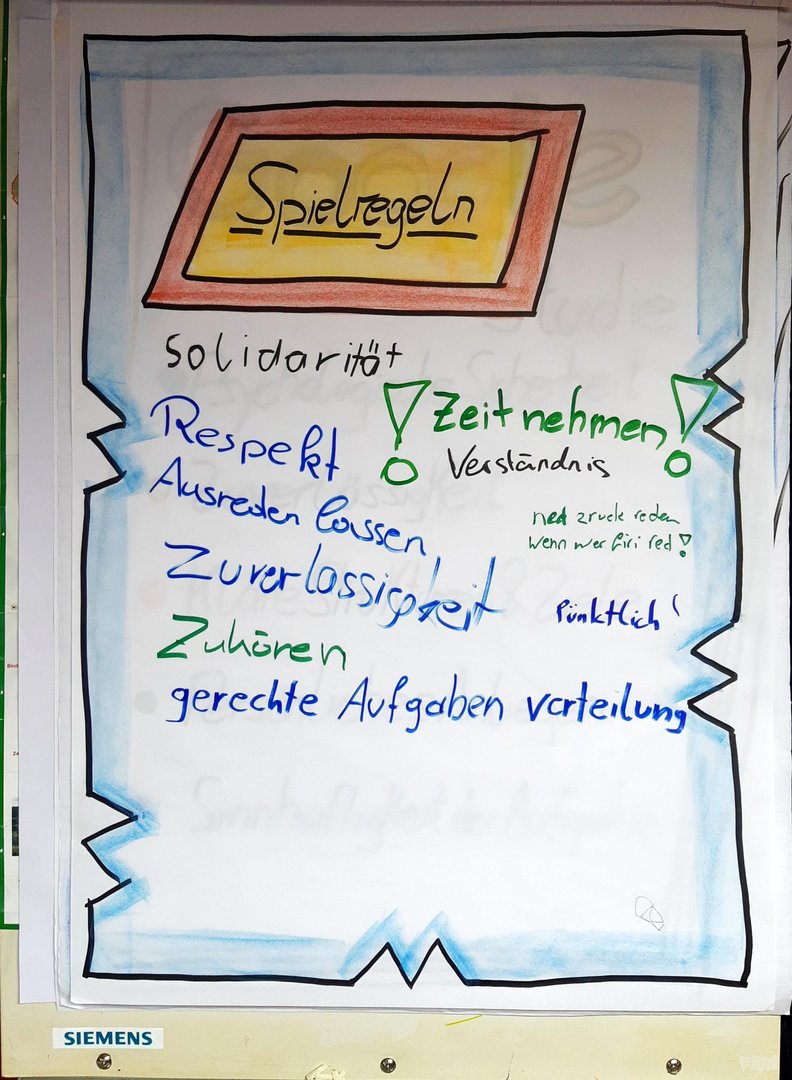 Spielregeln
Solidarität
! Zeit nehmen !
Respekt
Verständnis
Ausreden lassen
ned zruck reden
wenn wer firi red!
Zuverlässigkeit
Pünktlich!
Zuhören
gerechte Aufgaben verteilung
SIEMENS